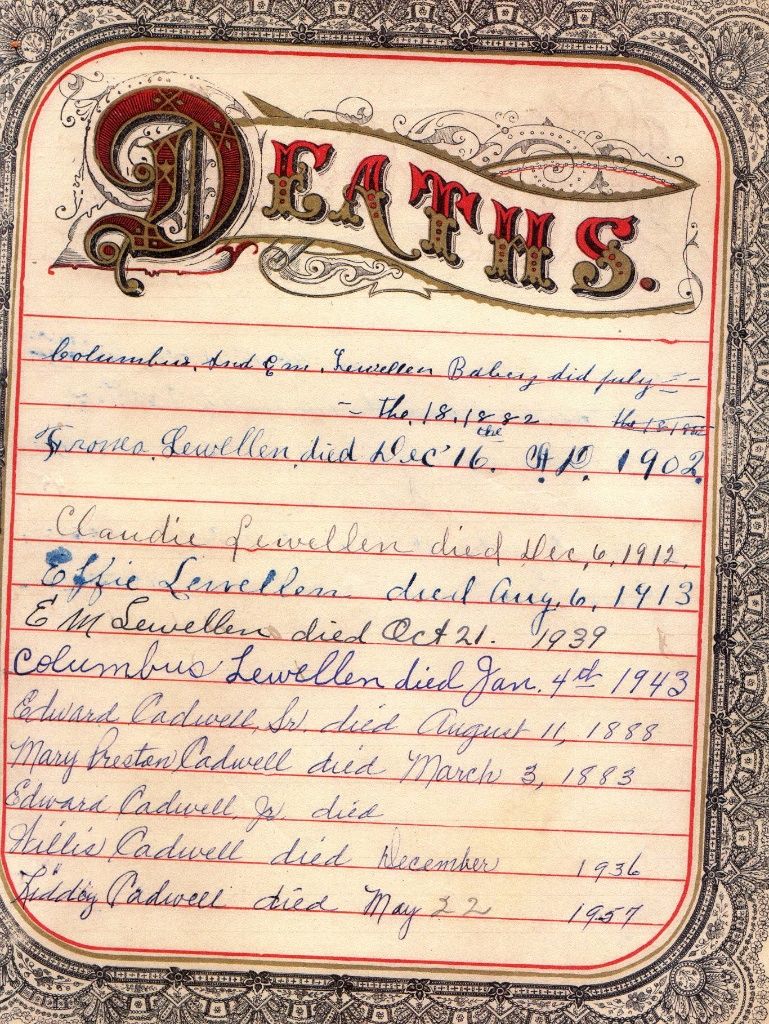 DEATHS.
Columbus. And Em. Lewellen Babey did july
the 18. 1882. the 18 18
Lewellen, died Dec 16. the A.D. 1902.
Claudie Lewellen died Dec, 6, 1912.
Effie Lewellen died Aug. 6, 1913
E M Lewellen died Oct 21. 1939
Columbus Lewellen died Jan. 4th 1943
Edward Cadwell, Sr. died August 11, 1888
Mary Preston Cadwell died March 3, 1883
Edward Cadwell, Jr. died
Willis Cadwell died December 1936
Cadwell died May 22 1957